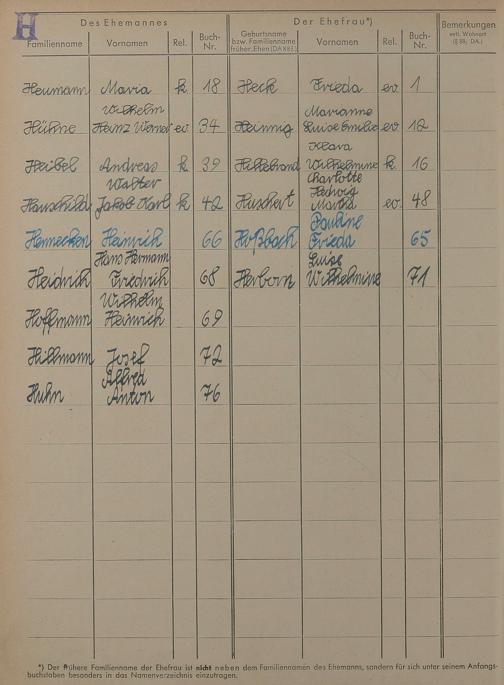 H
Des Ehemannes Der Ehefrau*) Bemerkungen
evtl. Wohnort
(§ 88, DA.)
Familienname Vornamen Rel. Buch-Nr. Geburtsname
bzw. Familienname
früher. Ehen (DA § 86.) Vornamen Rel. Buch-Nr.
Heumann Maria k 18 Heck Frieda ev 1
Wilhelm Marianne
Hühne Heinz Werner ev 34 Hennig Luise Emilie ev 12
Klara
Heibel Andreas k 39 Hillebrand Wilhelmine k 16
Walter Charlotte
Hedwig
Hauschild Jakob Karl k 42 Huschert Martha ev. 48
Pauline
Hennecken Heinrich 66 Hoßbach Frieda 65
Hans Hermann Luise
Heidrich Friedrich 68 Herborn Wilhelmine 71
Wilhelm
Hoffmann Heinrich 69
Hillmann Josef 72
Alfred
Huhn Anton 76
*) Der frühere Familienname der Ehefrau ist nicht neben dem Familiennamen des Ehemanns, sondern für sich unter seinem Anfangs-
buchstaben besonders in das Namenverzeichnis einzutragen.